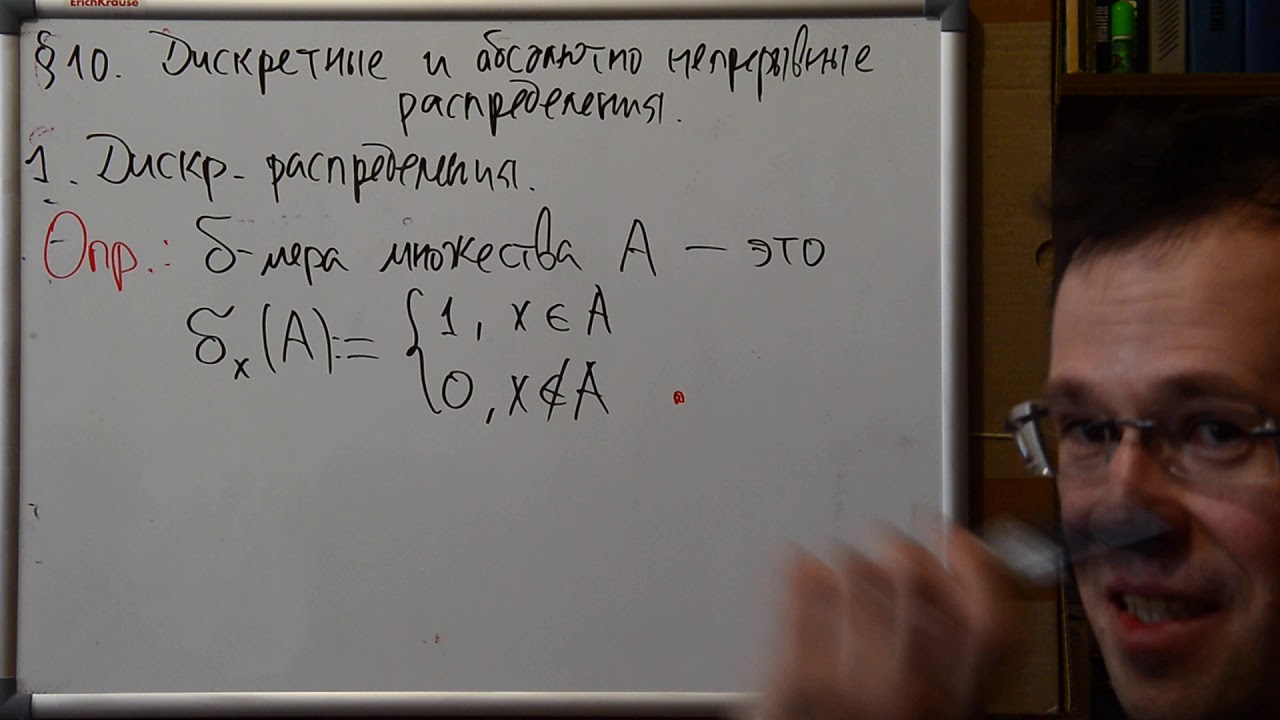 ErichKrause
§10. Дискретные и абсолютно непрерывные
распределения.
1. Дискр. распределения.
Опр.: δ-мера множества A — это
δₓ(A) := { 1, x ∈ A
0, x ∉ A